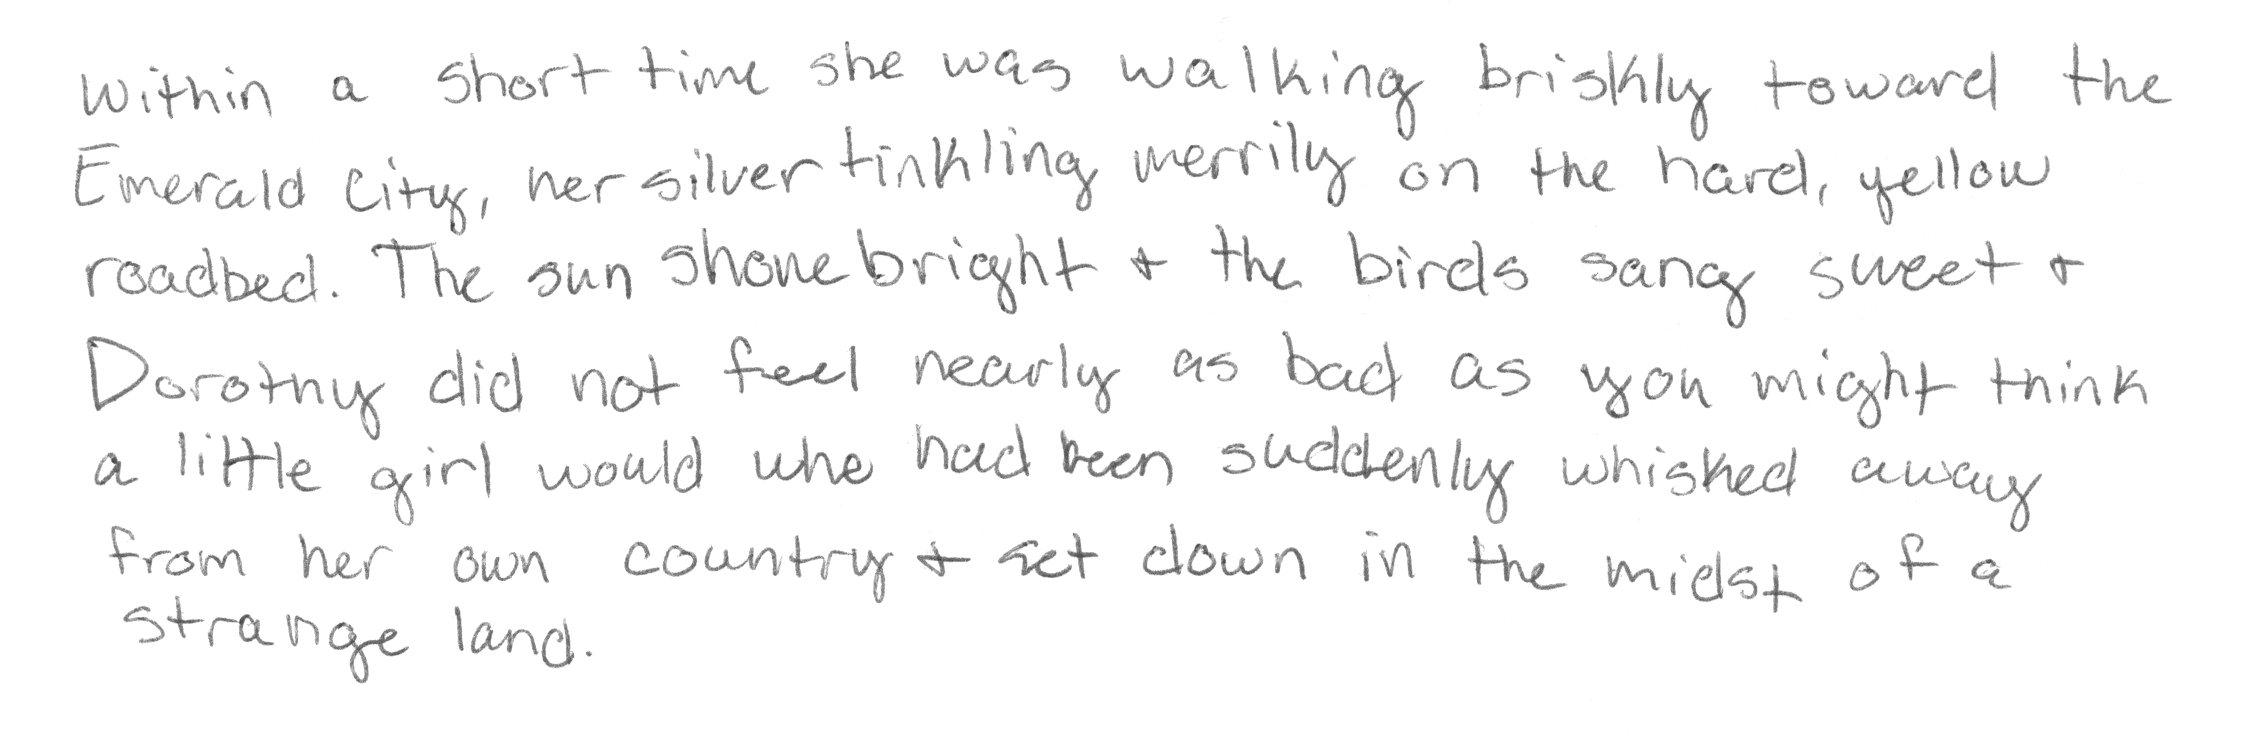 Within a short time she was walking briskly toward the
Emerald City, her silver tinkling merrily on the hard, yellow
roadbed. The sun shone bright + the birds sang sweet +
Dorothy did not feel nearly as bad as you might think
a little girl would who had been suddenly whisked away
from her own country + set down in the midst of a
strange land.